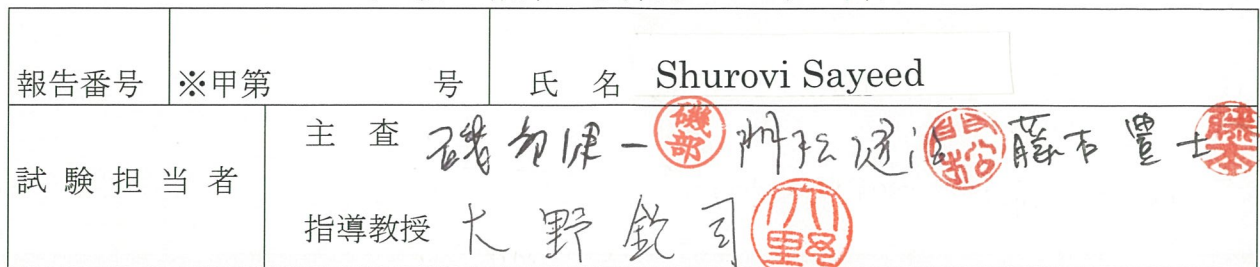 報告番号 ※甲第 号 氏 名 Shurovi Sayeed
試験担当者 主 査 磯部健一 磯部 門松健治 門松 藤本豊士 藤本
指導教授 大野欽司 大野